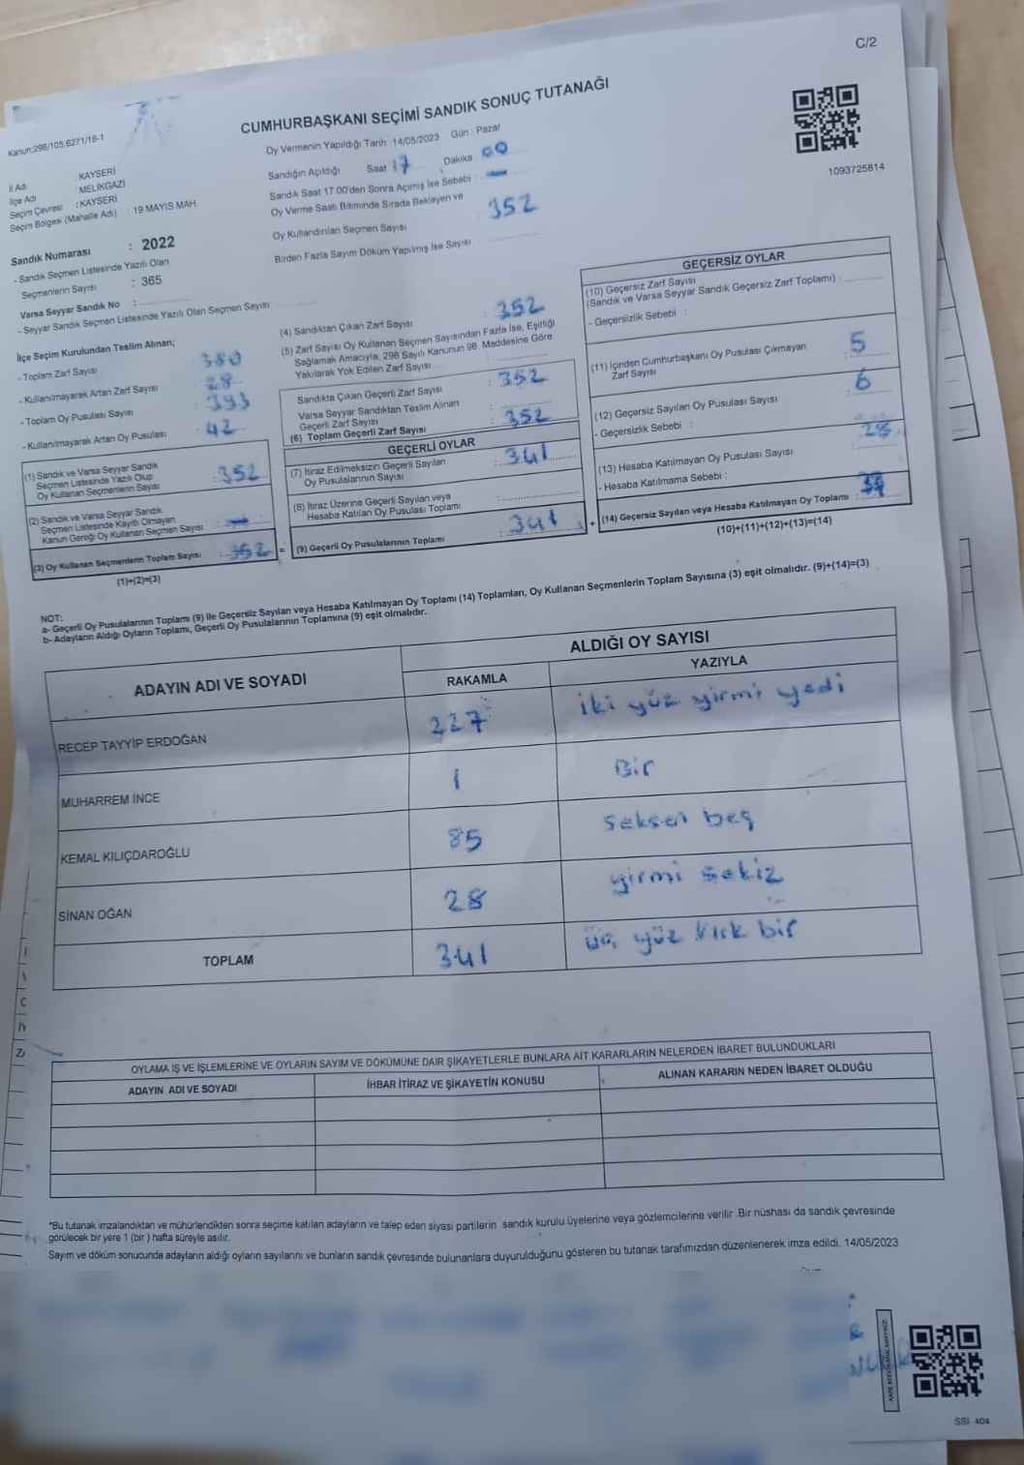 C/2
CUMHURBAŞKANI SEÇİMİ SANDIK SONUÇ TUTANAĞI
Kanun:298/105,6271/18-1
İl Adı : KAYSERİ
İlçe Adı : MELİKGAZİ
Seçim Çevresi : KAYSERİ
Seçim Bölgesi (Mahalle Adı) : 19 MAYIS MAH.
Sandık Numarası : 2022
- Sandık Seçmen Listesinde Yazılı Olan
Seçmenlerin Sayısı : 365
Varsa Seyyar Sandık No :
- Seyyar Sandık Seçmen Listesinde Yazılı Olan Seçmen Sayısı
Oy Vermenin Yapıldığı Tarih: 14/05/2023 Gün : Pazar
Sandığın Açıldığı Saat 17 Dakika 00
Sandık Saat 17.00'den Sonra Açılmış İse Sebebi : -
Oy Verme Saati Bitiminde Sırada Bekleyen ve
Oy Kullandırılan Seçmen Sayısı 352
Birden Fazla Sayım Döküm Yapılmış İse Sayısı
1093725814
İlçe Seçim Kurulundan Teslim Alınan;
- Toplam Zarf Sayısı : 380
- Kullanılmayarak Artan Zarf Sayısı : 28
- Toplam Oy Pusulası Sayısı : 393
- Kullanılmayarak Artan Oy Pusulası : 42
(1) Sandık ve Varsa Seyyar Sandık
Seçmen Listesinde Yazılı Olup
Oy Kullanan Seçmenlerin Sayısı : 352
(2) Sandık ve Varsa Seyyar Sandık
Seçmen Listesinde Kayıtlı Olmayan
Kanun Gereği Oy Kullanan Seçmen Sayısı : -
(3) Oy Kullanan Seçmenlerin Toplam Sayısı : 352 =
(1)+(2)=(3)
(4) Sandıktan Çıkan Zarf Sayısı : 352
(5) Zarf Sayısı Oy Kullanan Seçmen Sayısından Fazla İse, Eşitliği
Sağlamak Amacıyla, 298 Sayılı Kanunun 98. Maddesine Göre
Yakılarak Yok Edilen Zarf Sayısı
Sandıkta Çıkan Geçerli Zarf Sayısı : 352
Varsa Seyyar Sandıktan Teslim Alınan
Geçerli Zarf Sayısı :
(6) Toplam Geçerli Zarf Sayısı : 352
GEÇERLİ OYLAR
(7) İtiraz Edilmeksizin Geçerli Sayılan
Oy Pusulalarının Sayısı : 341
(8) İtiraz Üzerine Geçerli Sayılan veya
Hesaba Katılan Oy Pusulası Toplamı :
(9) Geçerli Oy Pusulalarının Toplamı : 341 +
GEÇERSİZ OYLAR
(10) Geçersiz Zarf Sayısı
(Sandık ve Varsa Seyyar Sandık Geçersiz Zarf Toplamı) :
- Geçersizlik Sebebi :
(11) İçinden Cumhurbaşkanı Oy Pusulası Çıkmayan
Zarf Sayısı : 5
(12) Geçersiz Sayılan Oy Pusulası Sayısı : 6
- Geçersizlik Sebebi :
(13) Hesaba Katılmayan Oy Pusulası Sayısı :
- Hesaba Katılmama Sebebi :
(14) Geçersiz Sayılan veya Hesaba Katılmayan Oy Toplamı :
(10)+(11)+(12)+(13)=(14)
NOT:
a- Geçerli Oy Pusulalarının Toplamı (9) ile Geçersiz Sayılan veya Hesaba Katılmayan Oy Toplamı (14) Toplamları, Oy Kullanan Seçmenlerin Toplam Sayısına (3) eşit olmalıdır. (9)+(14)=(3)
b- Adayların Aldığı Oyların Toplamı, Geçerli Oy Pusulalarının Toplamına (9) eşit olmalıdır.
ADAYIN ADI VE SOYADI
ALDIĞI OY SAYISI
RAKAMLA YAZIYLA
RECEP TAYYİP ERDOĞAN 227 iki yüz yirmi yedi
MUHARREM İNCE 1 Bir
KEMAL KILIÇDAROĞLU 85 seksen beş
SİNAN OĞAN 28 yirmi sekiz
TOPLAM 341 üç yüz kırk bir
OYLAMA İŞ VE İŞLEMLERİNE VE OYLARIN SAYIM VE DÖKÜMÜNE DAİR ŞİKAYETLERLE BUNLARA AİT KARARLARIN NELERDEN İBARET BULUNDUKLARI
ADAYIN ADI VE SOYADI İHBAR İTİRAZ VE ŞİKAYETİN KONUSU ALINAN KARARIN NEDEN İBARET OLDUĞU
*Bu tutanak imzalandıktan ve mühürlendikten sonra seçime katılan adayların ve talep eden siyasi partilerin sandık kurulu üyelerine veya gözlemcilerine verilir .Bir nüshası da sandık çevresinde
görülecek bir yere 1 (bir ) hafta süreyle asılır.
Sayım ve döküm sonucunda adayların aldığı oyların sayılarını ve bunların sandık çevresinde bulunanlara duyurulduğunu gösteren bu tutanak tarafımızdan düzenlenerek imza edildi. 14/05/2023
SSI 404